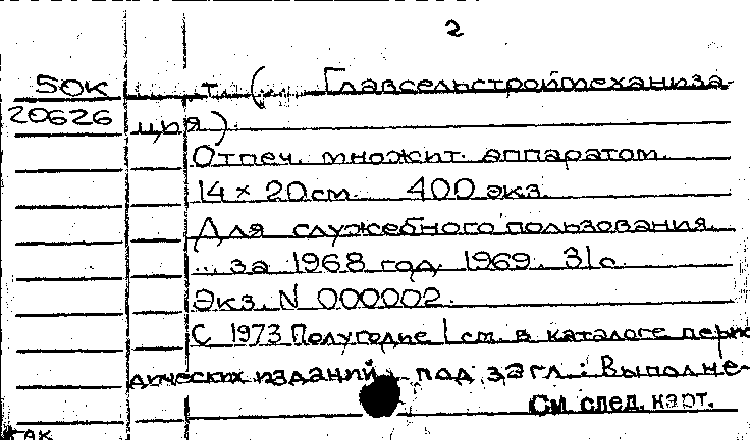 2
50К т. ( Главсельстроймеханиза-
20626 ция).
Отпеч. множит. аппаратом.
14 × 20 см. 400 экз.
Для служебного пользования.
... за 1968 год. 1969. 31 с.
Экз. N 000002.
С 1973 Полугодие 1 см. в каталоге перио
дических изданий, под загл.: Выполне-
См. след. карт.